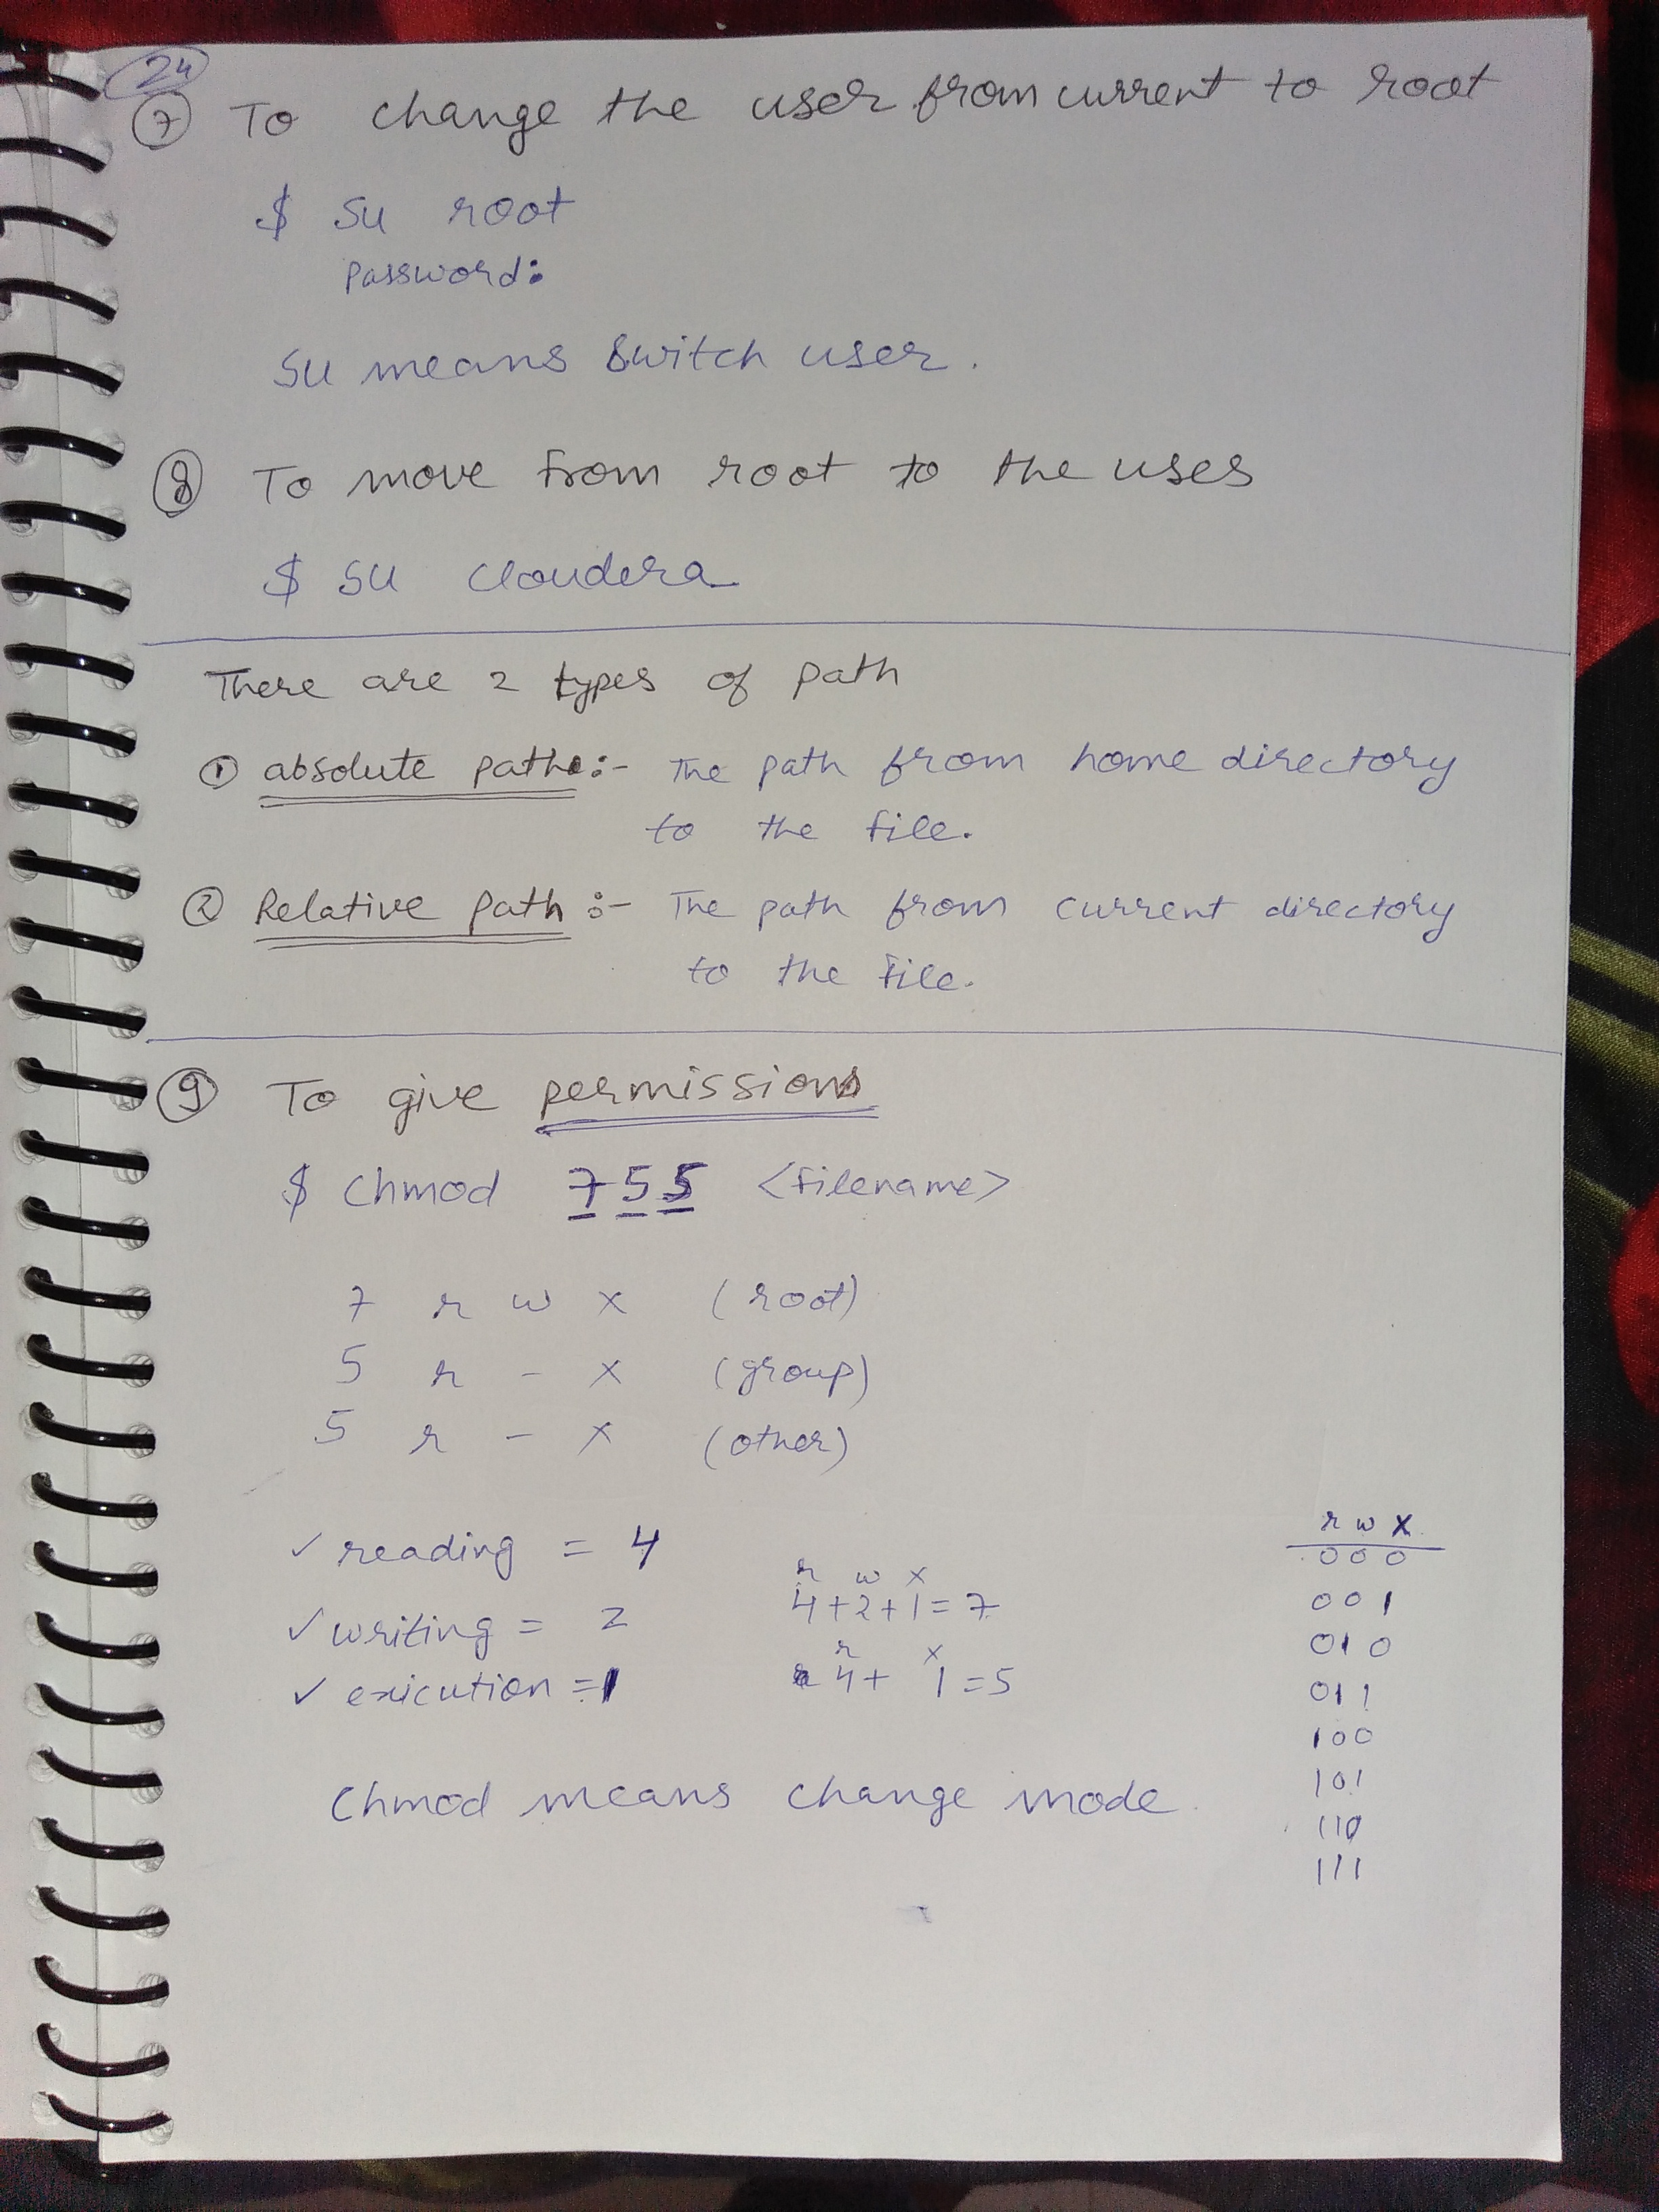 24
7 To change the user from current to root
$ su root
Password:
su means switch user.
8 To move from root to the uses
$ su cloudera
There are 2 types of path
1 absolute path :- The path from home directory
to the file.
2 Relative path :- The path from current directory
to the file.
9 To give permissions
$ chmod 755 <filename>
7 r w x (root)
5 r - x (group)
5 r - x (other)
✓ reading = 4
✓ writing = 2
✓ exicution = 1
r w x
4+2+1=7
r x
4+ 1=5
r w x
000
001
010
011
100
101
110
111
Chmod means change mode.